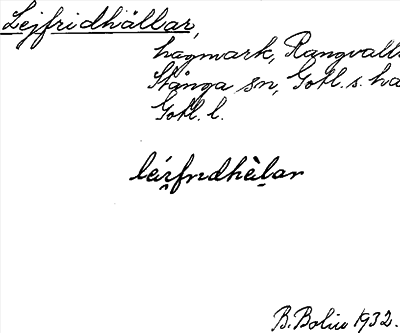 Lejfridhällar,
hagmark, Rangvalls
Stånga sn, Gotl. s. hd
Gotl. l.
B. Bolin 1932.